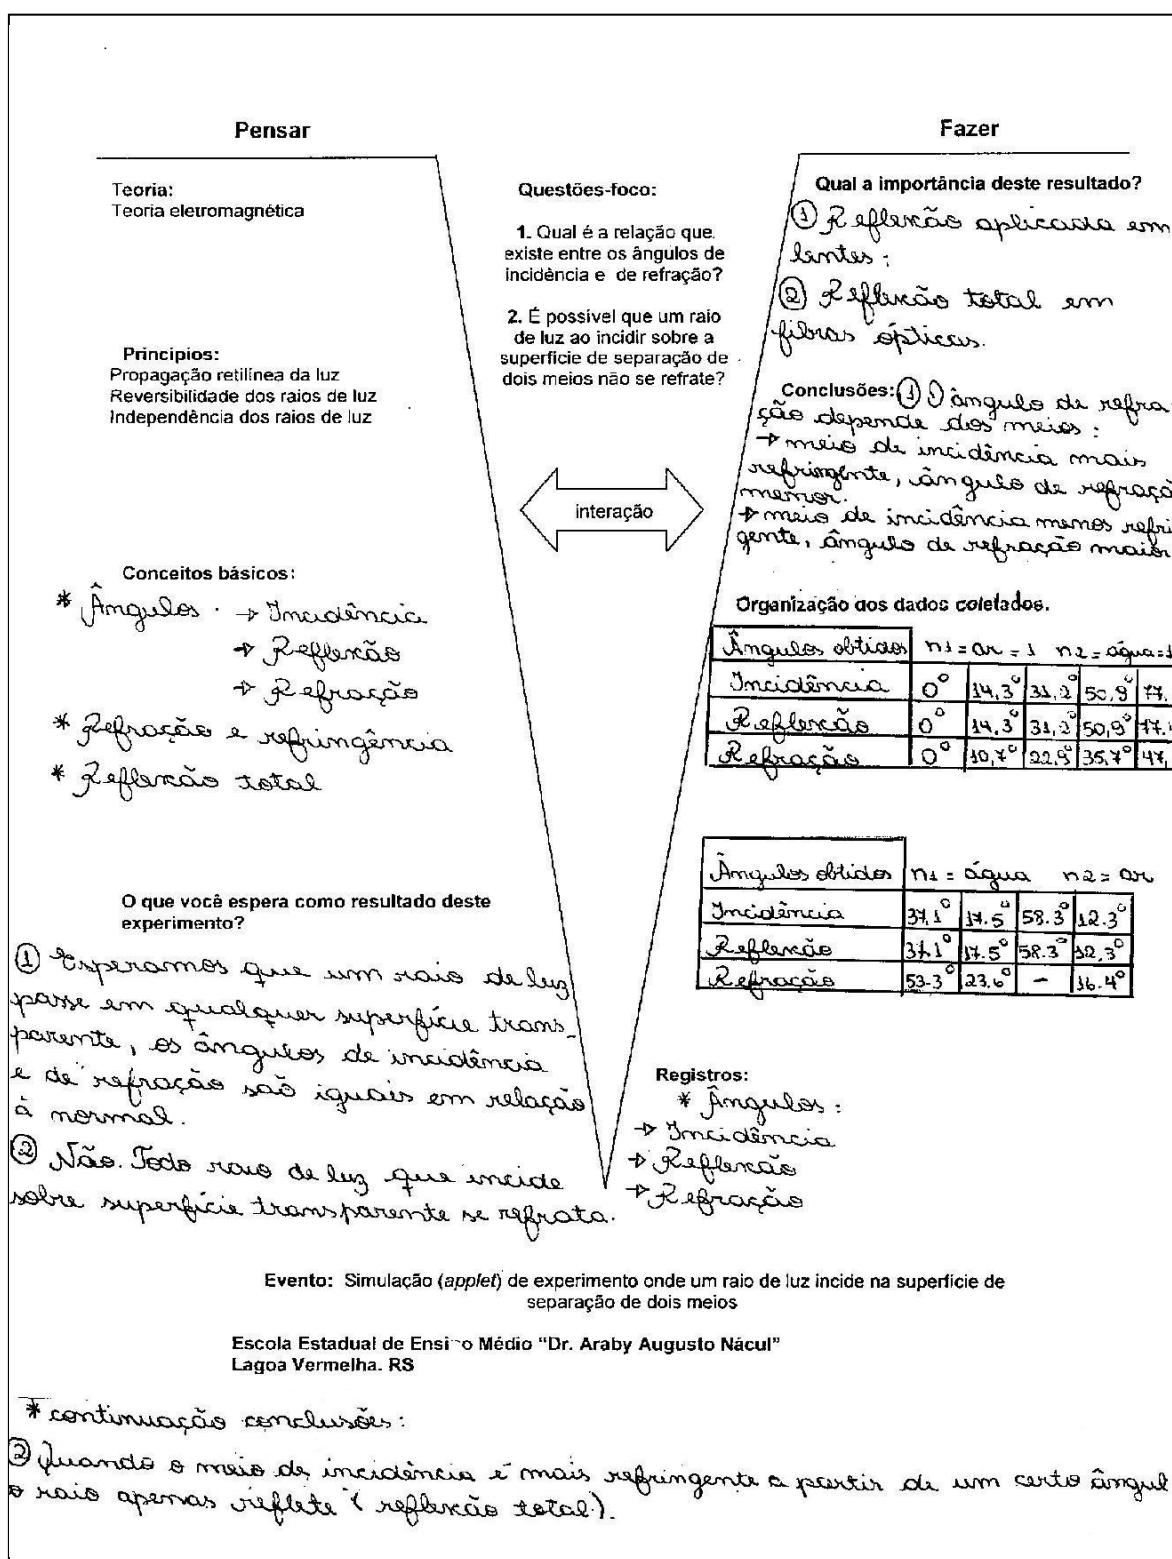 Pensar
Teoria:
Teoria eletromagnética
Princípios:
Propagação retilínea da luz
Reversibilidade dos raios de luz
Independência dos raios de luz
Conceitos básicos:
* Ângulos. → Incidência
→ Reflexão
→ Refração
* Refração e refringência
* Reflexão total
O que você espera como resultado deste
experimento?
① Esperamos que um raio de luz
passe em qualquer superfície trans-
parente, os ângulos de incidência
e de refração são iguais em relação
à normal.
② Não. Todo raio de luz que incide
sobre superfície transparente se refrata.
Questões-foco:
1. Qual é a relação que
existe entre os ângulos de
incidência e de refração?
2. É possível que um raio
de luz ao incidir sobre a
superfície de separação de
dois meios não se refrate?
interação
Fazer
Qual a importância deste resultado?
① Reflexão aplicada em
lentes;
② Reflexão total em
fibras ópticas.
Conclusões: ① O ângulo de refra
ção depende dos meios:
→ meio de incidência mais
refringente, ângulo de refraçã
menor.
→ meio de incidência menos refri
gente, ângulo de refração maior
Organização dos dados coletados.
Ângulos obtidos n1 = ar = 1 n2 = água = 1
Incidência 0° 14,3° 31,2° 50,9° 77.
Reflexão 0° 14,3° 31,2° 50,9° 77.
Refração 0° 10,7° 22,9° 35,7° 47,
Ângulos obtidos n1 = água n2 = ar
Incidência 37,1° 17.5° 58.3° 12.3°
Reflexão 37.1° 17.5° 58.3° 12,3°
Refração 53.3° 23.6° - 16.4°
Registros:
* Ângulos:
→ Incidência
→ Reflexão
→ Refração
Evento: Simulação (applet) de experimento onde um raio de luz incide na superfície de
separação de dois meios
Escola Estadual de Ensino Médio “Dr. Araby Augusto Nácul”
Lagoa Vermelha. RS
* continuação conclusões:
② Quando o meio de incidência é mais refringente a partir de um certo ângul
o raio apenas reflete (reflexão total).